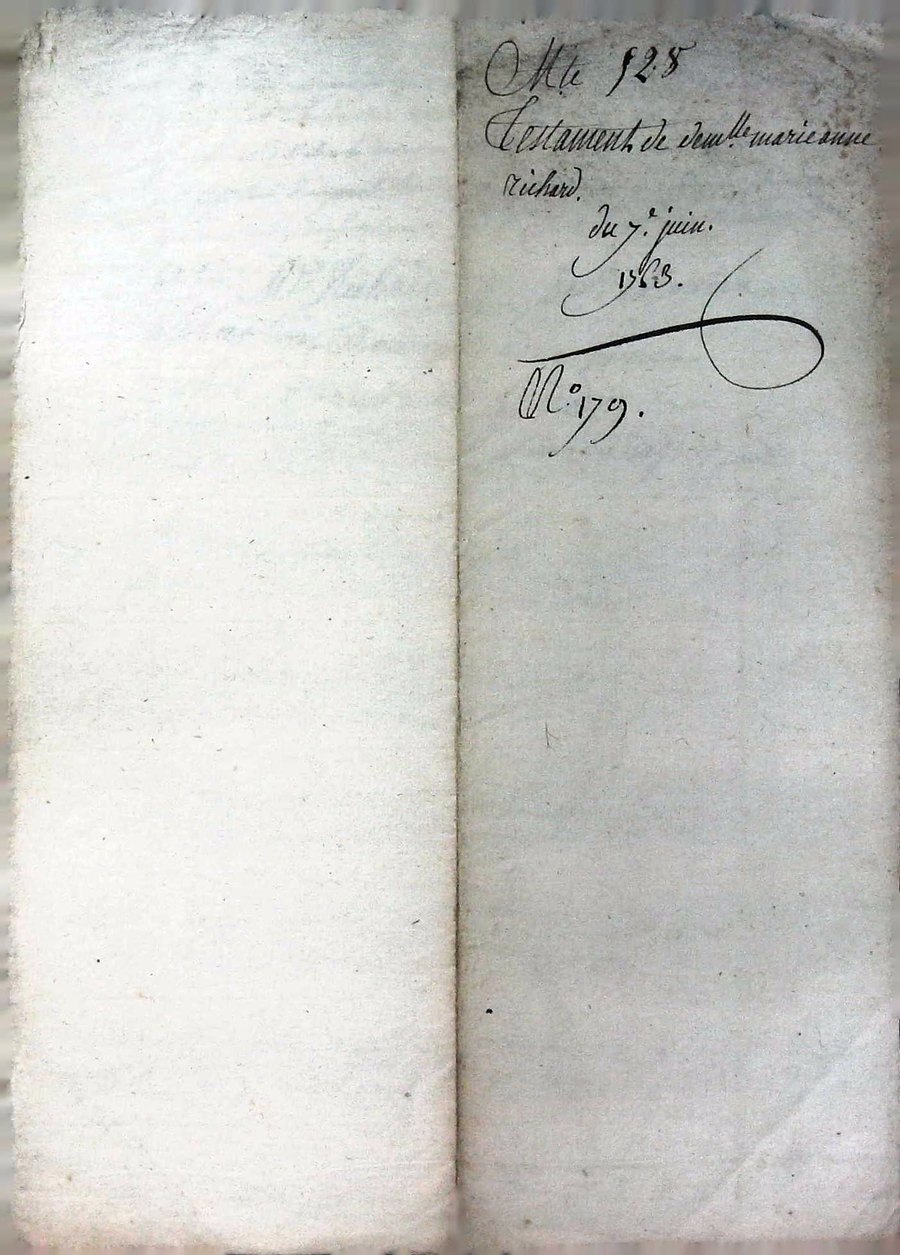 Mte 528
Testament de demlle marie anne
richard.
du 7e. juin.
1763.
No. 179.